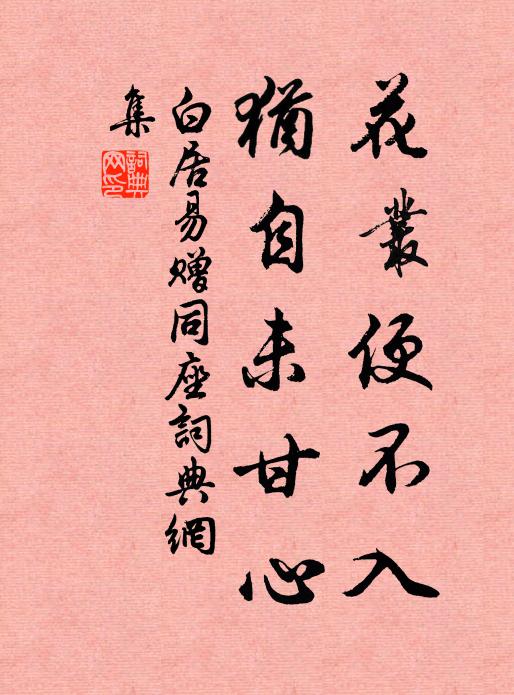 花叢便不入
猶自未甘心
白居易贈同座詞典網
集
詞典
网印